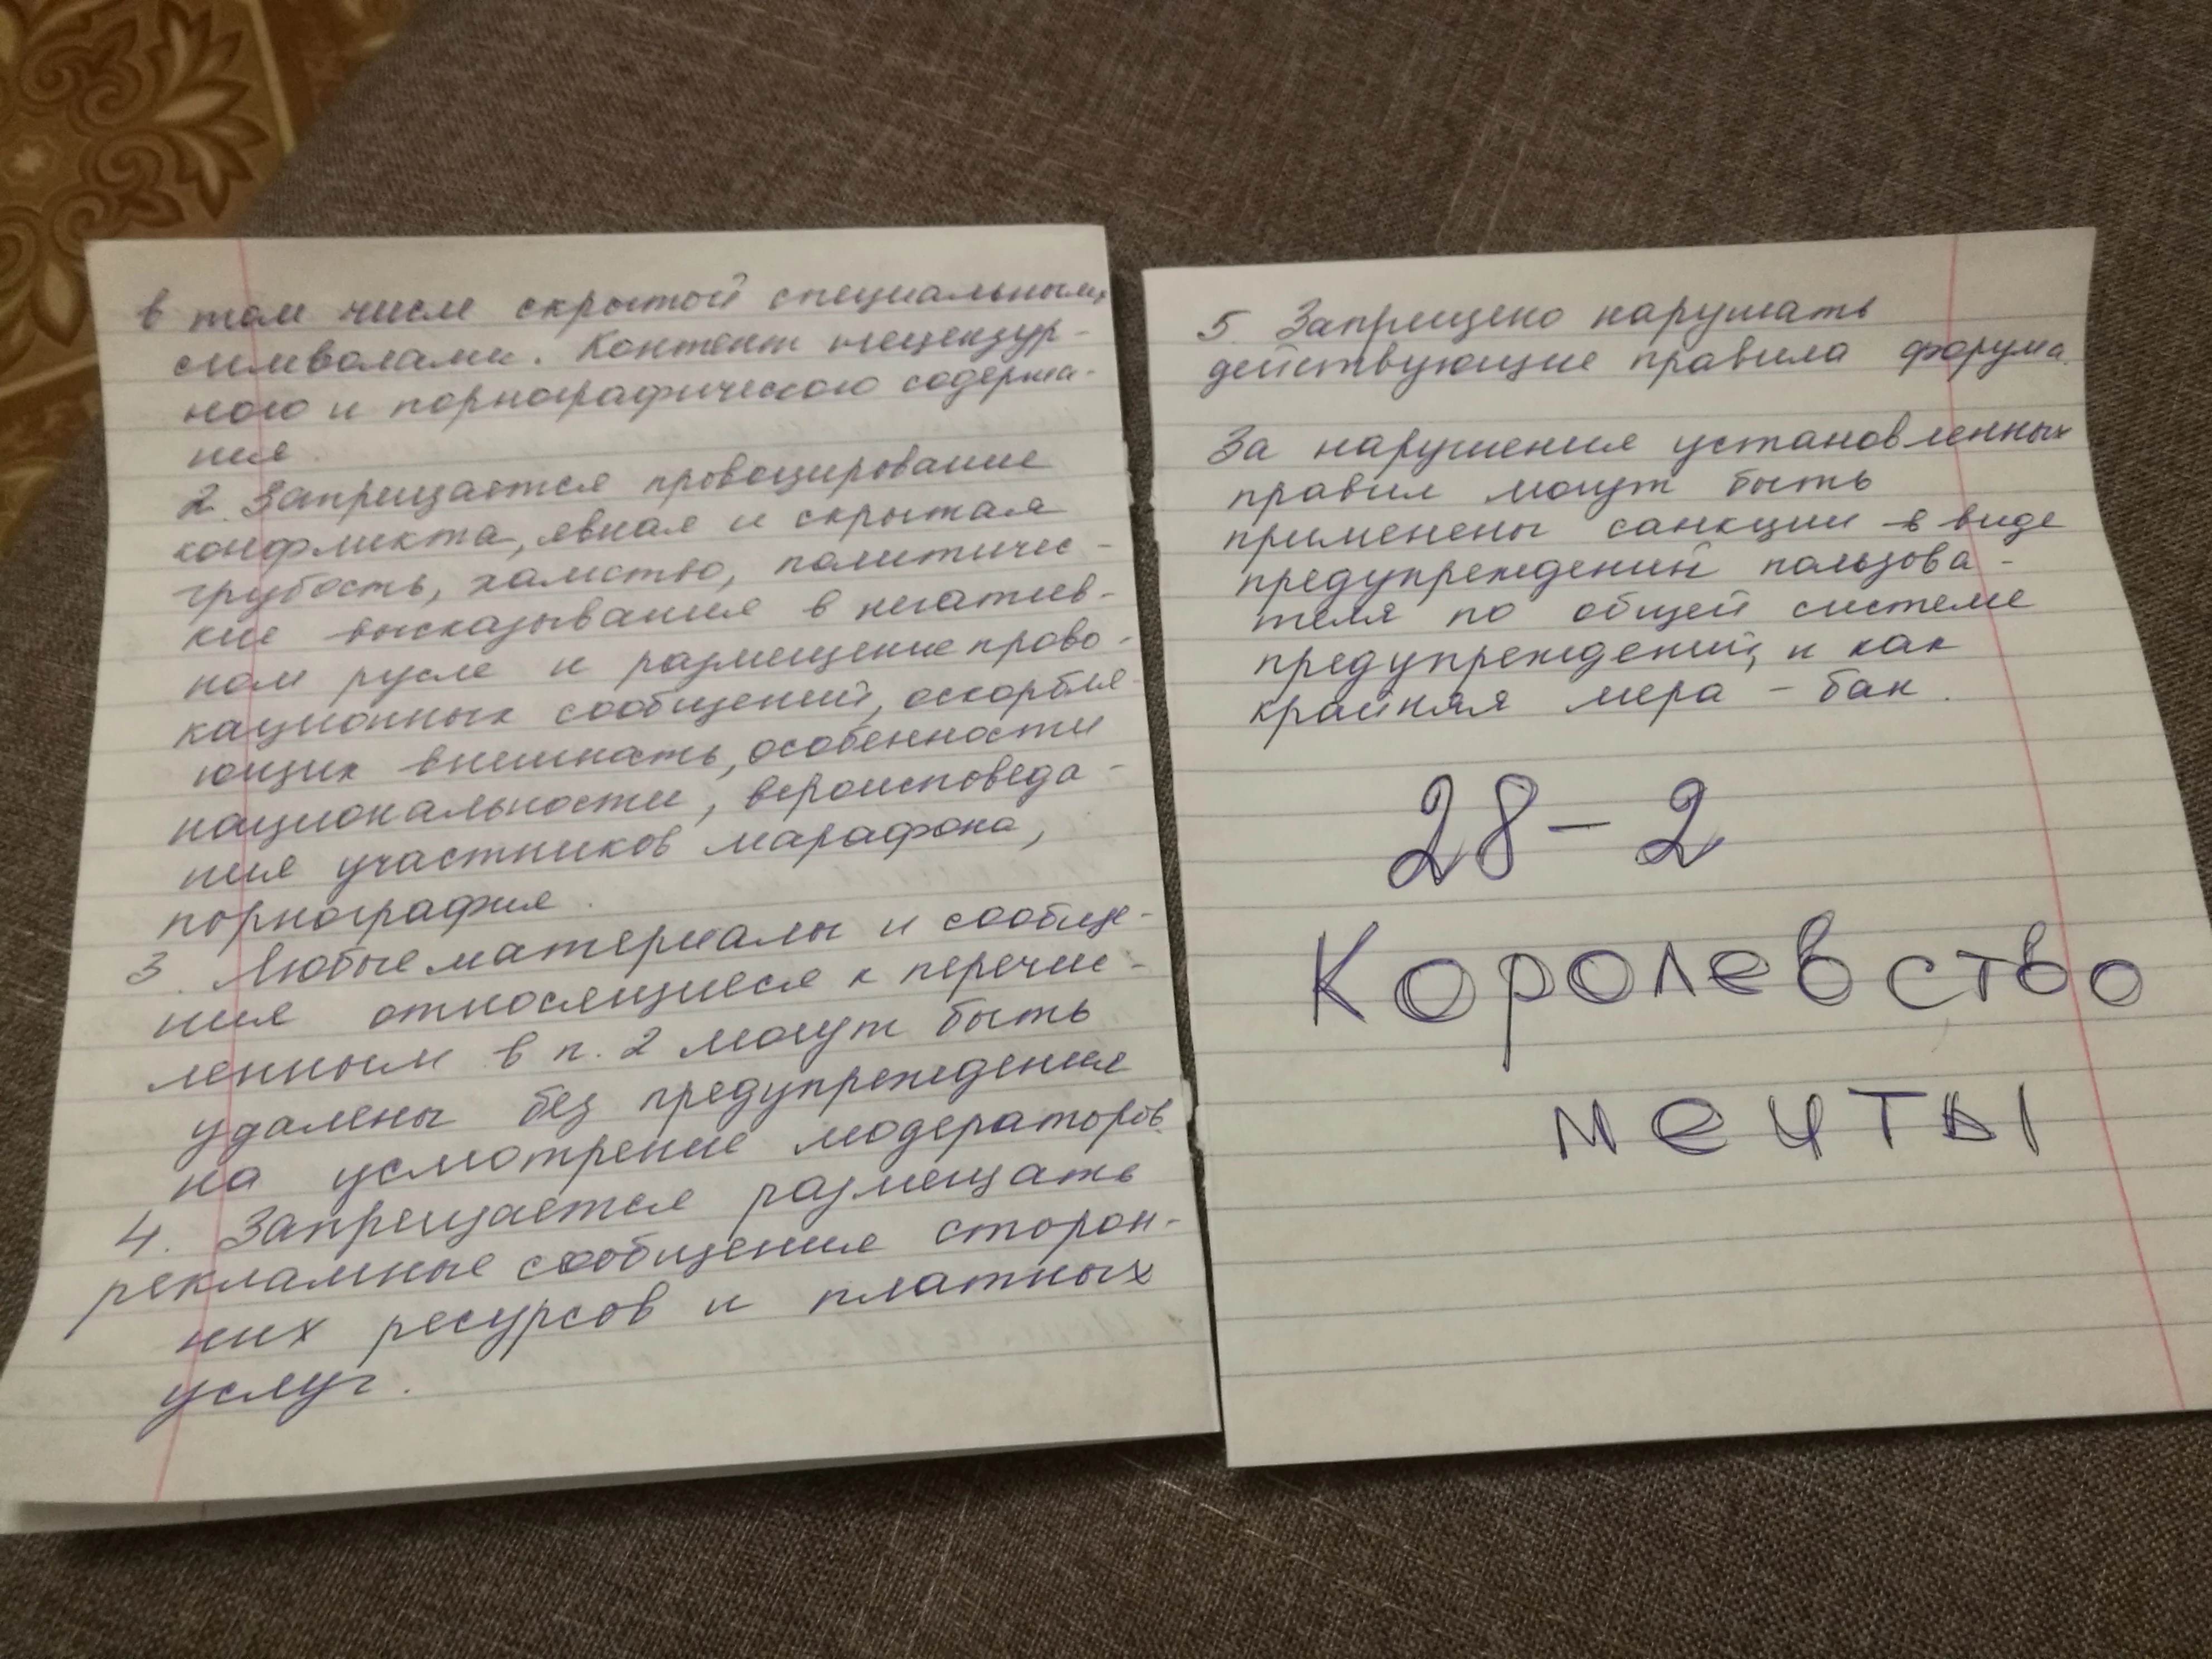 в том числе скрытой специальными
символами. Контент нецензур-
ного и порнографического содержа-
ния.
2. Запрещается провоцирование
конфликта, явная и скрытая
грубость, хамство, политичес-
кие высказывания в негатив-
ном русле и размещение прово-
кационных сообщений, оскорбля-
ющих внешность, особенности
национальности, вероисповеда-
ния участников марафона,
порнография.
3. Любые материалы и сообще-
ния относящиеся к перечис-
ленным в п. 2 могут быть
удалены без предупреждения
на усмотрение модераторов.
4. Запрещается размещать
рекламные сообщения сторон-
них ресурсов и платных
услуг.
5 Запрещено нарушать
действующие правила форума.
За нарушения установленных
правил могут быть
применены санкции в виде
предупреждений пользова-
теля по общей системе
предупреждений, и как
крайняя мера - бан.
28-2
Королевство
мечты